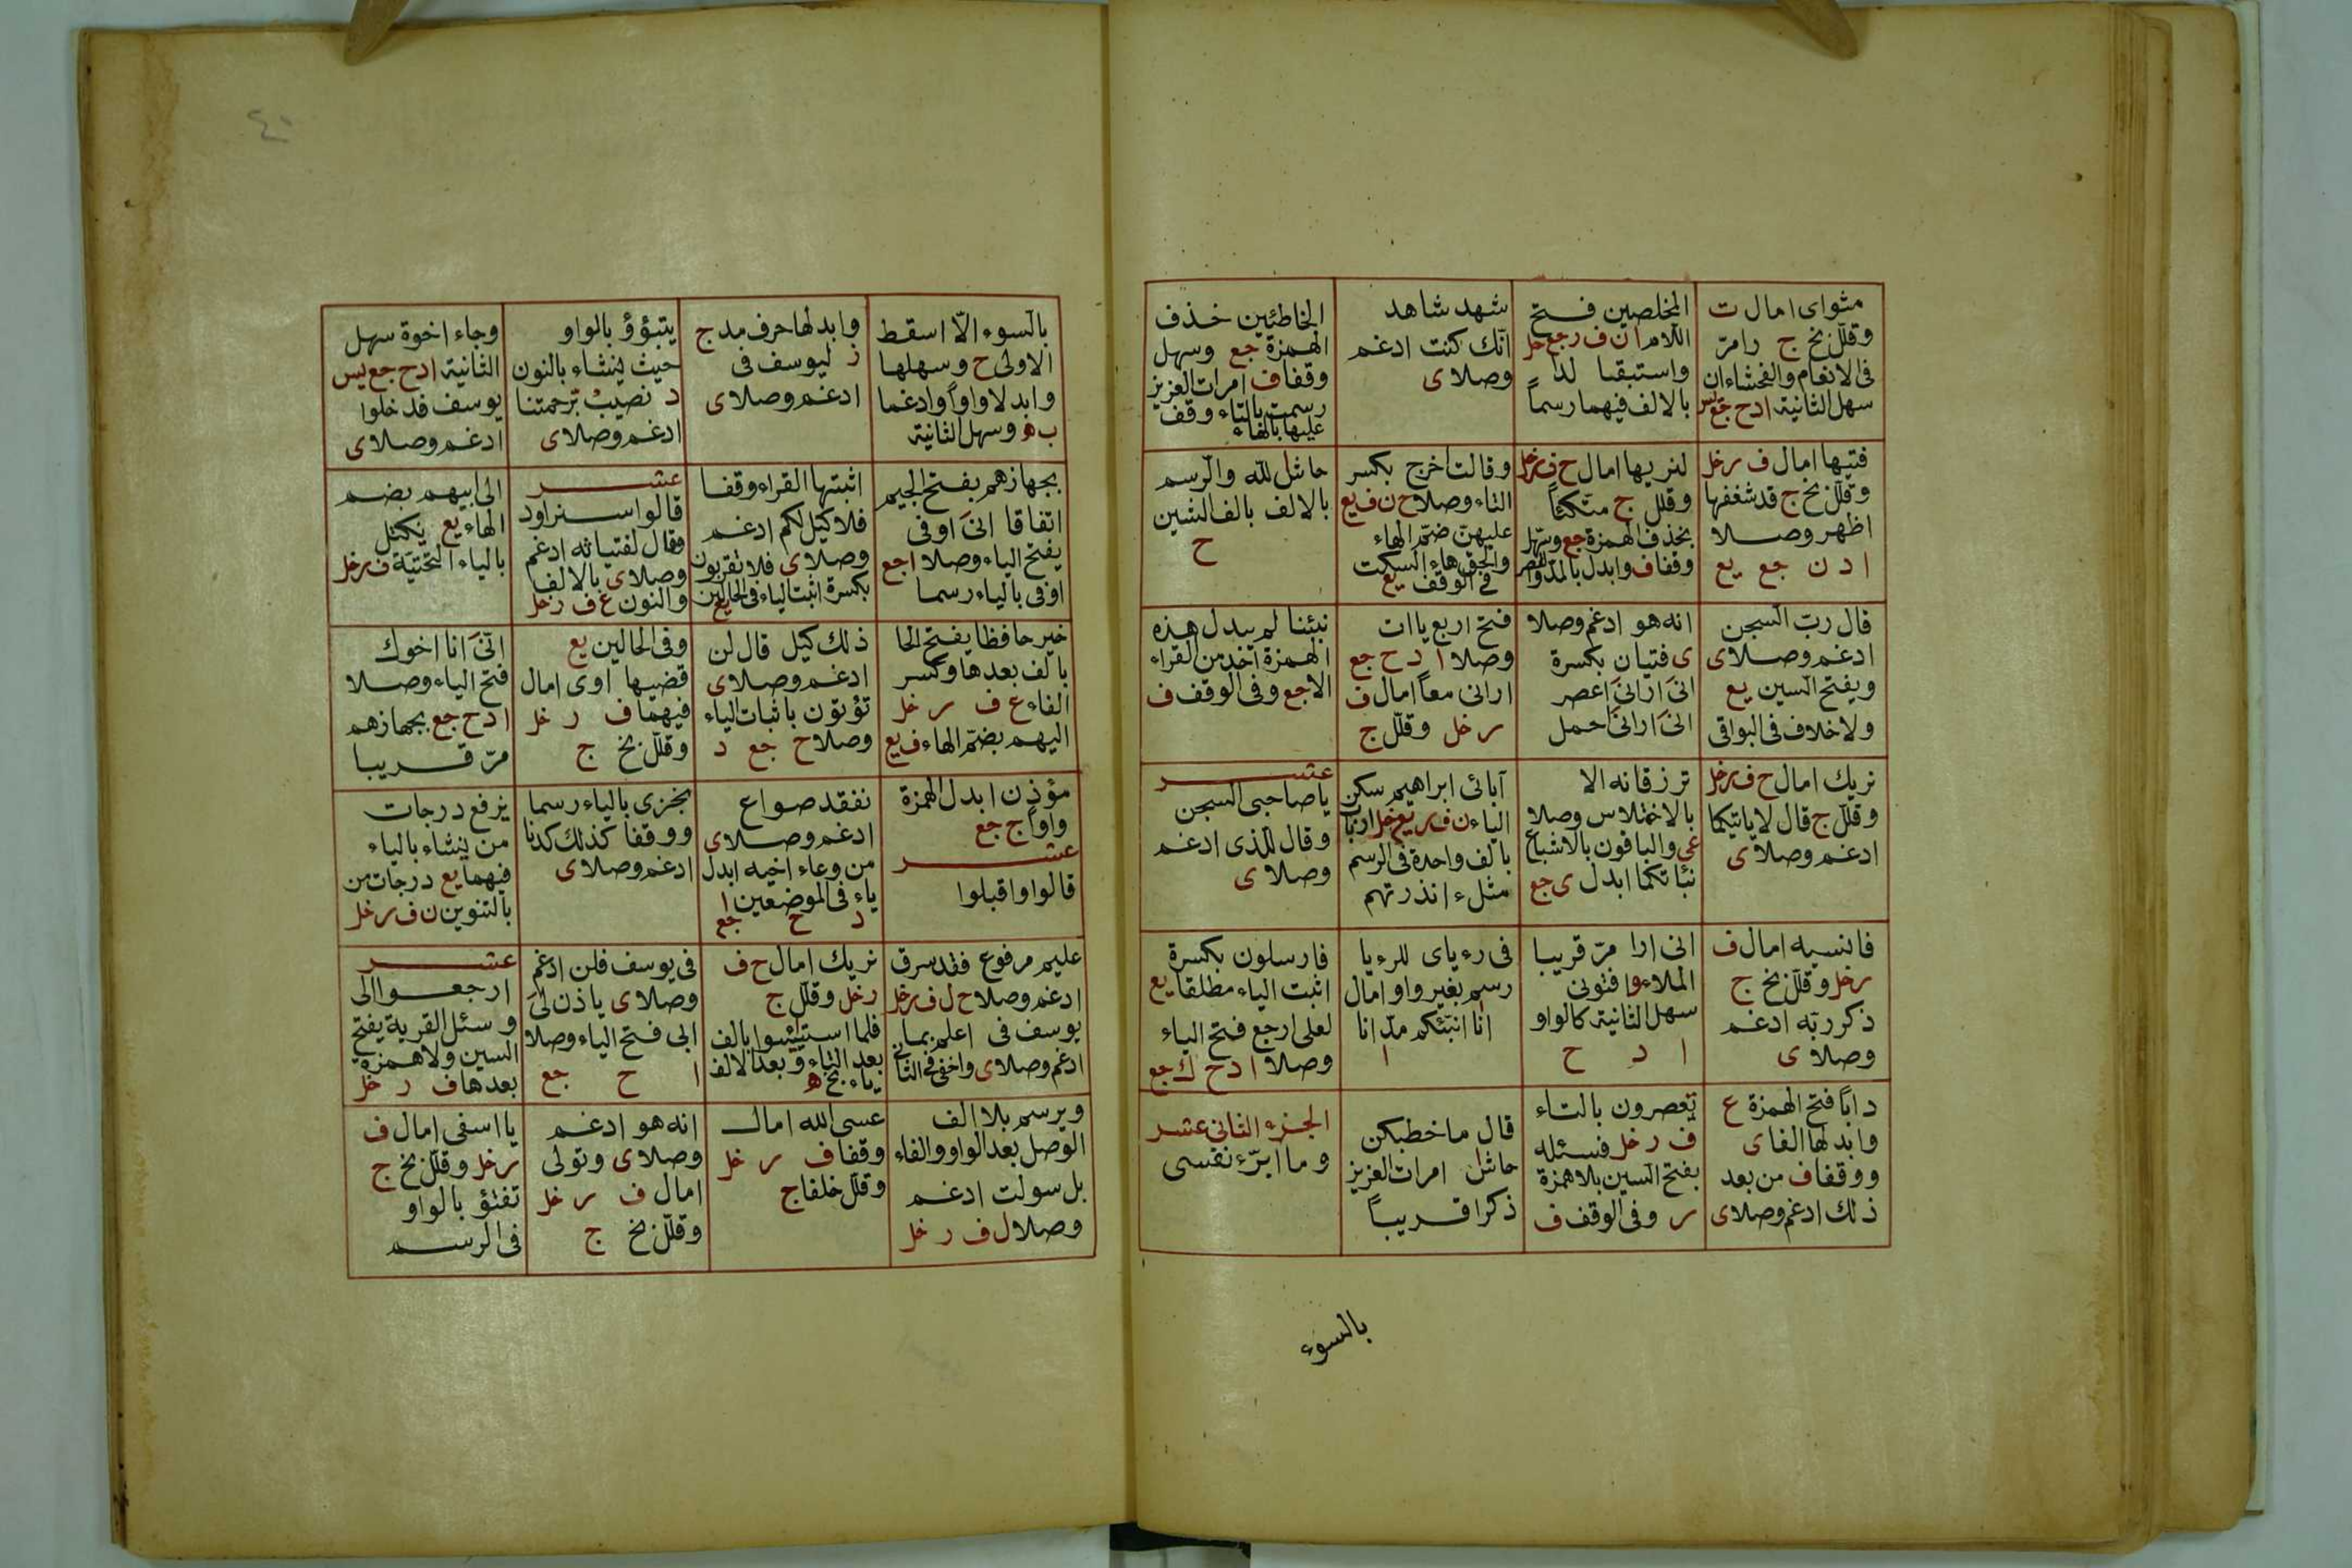 مثواى امال ت
وقلل بخ ج رامر
فى الانعام والفحشاء ان
سهل الثانية ادح جع يس
المخلصين فتح
اللام ان ف ر جع خل
واستبقا لدا
بالالف فيهما رسماً
شهد شاهد
انك كنت ادغم
وصلاى
الخاطئين حذف
الهمزة جع وسهل
وقفا ف امرات العزيز
رسمت بالتاء وقف
عليها بالهاء
فتيها امال ف ر خل
وقلل بخ ج قد شغفها
اظهر وصلا
ا د ن جع يع
لنريها امال ح ف ر خل
وقلل ج متكئاً
بحذف الهمزة جع وسهل
وقفا ف وابدل بالمد والقصر
وقالت اخرج بكسر
التاء وصلا ح ن ف يع
عليهن ضم الهاء
والحق هاء السكت
فى الوقف يع
حاش لله والرسم
بالالف بالف الشين
ح
قال رب السجن
ادغم وصلاى
ويفتح السين يع
ولا خلاف فى البواقى
انه هو ادغم وصلا
ى فتيان بكسرة
انى ارانى اعصر
انى ارانى احمل
فتح اربع ياات
وصلا ا د ح جع
ارانى معاً امال ف
ر خل وقلل ج
نبئنا لم يبدل هذه
الهمزة احد من القراء
الا جع وفى الوقف ف
نريك امال ح ف ر خل
وقلل ج قال لا ياتيكما
ادغم وصلاى
ترزقانه الا
بالاختلاس وصلا
عى والباقون بالاشباع
نباتكما ابدل ى جع
آبائى ابراهيم سكن
الياء ن ف ر يع خل ارباب
بالف واحدة فى الرسم
مثل ء انذرتهم
عشر
يا صاحبى السجن
وقال للذى ادغم
وصلاى
فانسيه امال ف
ر خل وقلل بخ ج
ذكر ربه ادغم
وصلاى
انى ارا مر قريبا
الملاء وا فتونى
سهل الثانية كالواو
ا د ح
فى رءياى للرءيا
رسم بغير واو امال
انا انبئكم مد انا
ا
فارسلون بكسرة
اثبت الياء مطلقا يع
لعلى ارجع فتح الياء
وصلا ا د ح ك جع
داباً فتح الهمزة ع
وابدلها الفاى
ووقفا ف من بعد
ذلك ادغم وصلاى
تعصرون بالتاء
ف ر خل فسئله
بفتح السين بلا همزة
ر وفى الوقف ف
قال ما خطبكن
حاش امرات العزيز
ذكرا قريباً
الجزء الثانى عشر
وما ابرّء نفسى
بالسوء
٤٠
بالسوء الّا اسقط
الاولى ح وسهلها
وابدلا واواً وادغما
ب ه وسهل الثانية
وابدلها حرف مد ج
ز ليوسف فى
ادغم وصلاى
يتبوؤ بالواو
حيث ينشاء بالنون
د نصيب برحمتنا
ادغم وصلاى
وجاء اخوة سهل
الثانية ادح جع يس
يوسف فدخلوا
ادغم وصلاى
بجهازهم بفتح الجيم
اتفاقا انى اوفى
يفتح الياء وصلا ا جع
اوفى بالياء رسما
اثبتها القراء وقفا
فلا كيل لكم ادغم
وصلاى فلا تقربون
بكسرة اثبت الياء فى الحالين يع
عشر
قالوا سنراود
وقال لفتياته ادغم
وصلاى بالالف
والنون ع ف ر خل
الى ابيهم بضم
الهاء يع يكتل
بالياء التحتية ف ر خل
خير حافظا يفتح الحا
بالف بعدها وكسر
الفاء ع ف ر خل
اليهم بضم الهاء ف يع
ذلك كيل قال لن
ادغم وصلاى
تؤتون باثبات الياء
وصلا ح جع د
وفى الحالين يع
قضيها اوى امال
فيهما ف ر خل
وقلل بخ ج
انى انا اخوك
فتح الياء وصلا
ا د ح جع بجهازهم
مر قريبا
مؤذن ابدل الهمزة
واوا ج جع
عشر
قالوا واقبلوا
نفقد صواع
ادغم وصلاى
من وعاء اخيه ابدل
ياء فى الموضعين ا
د ح جع
نجزى بالياء رسما
ووقفا كذلك كدنا
ادغم وصلاى
نرفع درجات
من ينشاء بالياء
فيهما يع درجات من
بالتنوين ن ف ر خل
عليم مرفوع فقد سرق
ادغم وصلا ح ل ف ر خل
يوسف فى اعلم بما
ادغم وصلاى واخفى فى الثانى
نريك امال ح ف
ر خل وقلل ج
فلما استيئسوا بالف
بعد التاء وبعد الالف
ياء بخ ه
فى يوسف فلن ادغم
وصلاى ياذن لى
ابى فتح الياء وصلا
ا ح جع
عشر
ارجعوا الى
وسئل القرية يفتح
السين ولا همزة
بعدها ف ر خل
ويرسم بلا الف
الوصل بعد الواو والفاء
بل سولت ادغم
وصلا ل ف ر خل
عسى الله امال
وقفا ف ر خل
وقلل خلفا ج
انه هو ادغم
وصلاى وتولى
امال ف ر خل
وقلل بخ ج
يا اسفى امال ف
ر خل وقلل بخ ج
تفتؤ بالواو
فى الرسم